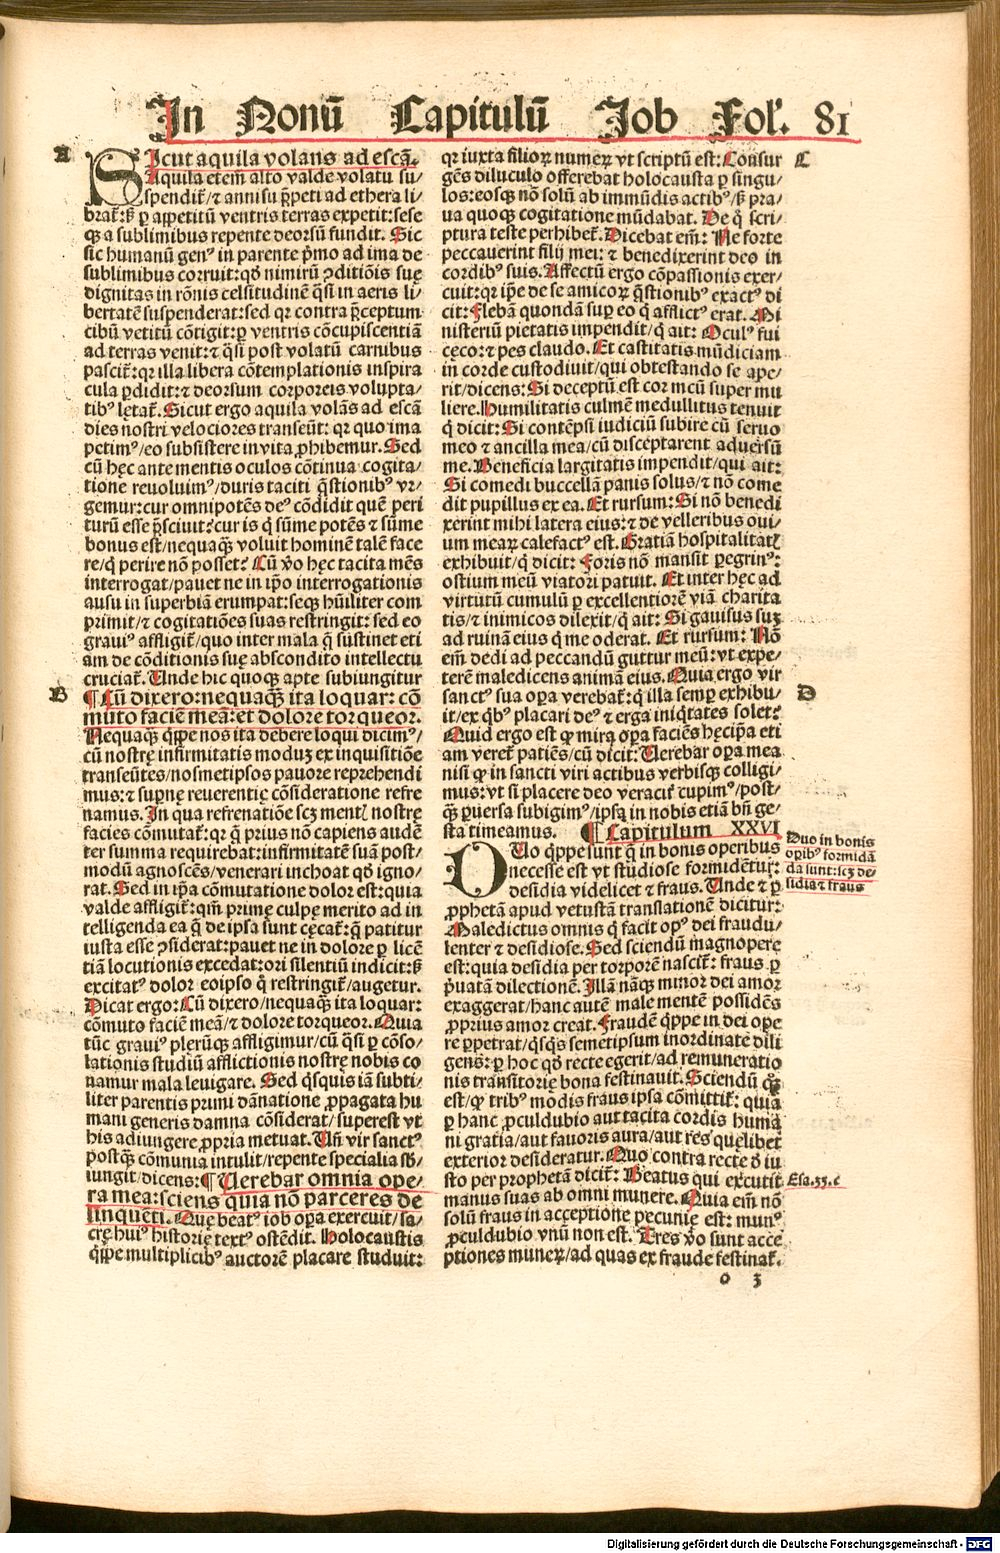 In Nonū Capitulū Job Fol'. 81
A
Sicut aquila volans ad escā.
Aquila etem̄ alto valde volatu su/
spendit᷑/⁊ annisu p̄peti ad ethera li/
brat᷑:ß ꝑ appetitū ventris terras expetit:sese
qꝫ a sublimibus repente deorsū fundit. Sic
sic humanū genꝰ in parente p̄mo ad ima de
sublimibus corruit:qđ nimirū ꝯditiōis suę
dignitas in rōnis celsitudinē q̄si in aeris li/
bertatē suspenderat:sed qꝛ contra p̄ceptum
cibū vetitū cōtigit:ꝑ ventris cōcupiscentiā
ad terras venit:⁊ q̄si post volatū carnibus
pascit᷑:qꝛ illa libera cōtemplationis inspira
cula ꝑdidit:⁊ deorsum corporeis volupta/
tibꝰ lętat᷑. Sicut ergo aquila volās ad escā
dies nostri velociores transeūt: qꝛ quo ima
petimꝰ/eo subsistere in vita ꝓhibemur. Sed
cū hęc ante mentis oculos cōtinua cogita/
tione reuoluimꝰ/duris taciti q̄stionibꝰ vr/
gemur:cur omnipotēs deꝰ cōdidit quē peri
turū esse p̄sciuit:cur is q̇ sūme potēs ⁊ sūme
bonus est/nequaqꝫ voluit hominē talē face
re/q̇ perire nō posset: Cū v̊o hęc tacita mēs
interrogat/pauet ne in ip̄o interrogationis
ausu in superbiā erumpat:seqꝫ hūiliter com
primit/⁊ cogitatiōes suas restringit: sed eo
grauiꝰ affligit᷑/quo inter mala q̄ sustinet eti
am de cōditionis suę abscondito intellectu
cruciat᷑. Unde hic quoqꝫ apte subiungitur
B
¶ Cū dixero:nequaqꝫ ita loquar: cō
muto faciē meā:et dolore torqueor.
Nequaqꝫ q̇ppe nos ita debere loqui dicimꝰ/
cū nostrę infirmitatis moduꝫ ex inquisitiōe
transeūtes/nosmetipsos pauore reprehendi
mus:⁊ supnę reuerentię cōsideratione refre
namus. In qua refrenatiōe scꝫ mentꝭ nostrę
facies cōmutat᷑: qꝛ q̄ prius nō capiens audē
ter summa requirebat:infirmitatē suā post/
modū agnoscēs/venerari inchoat qđ igno/
rat. Sed in ip̄a cōmutatione dolor est:quia
valde affligit᷑: qm̄ primę culpę merito ad in
telligenda ea q̄ de ipsa sunt cęcat᷑:q̄ patitur
iusta esse ꝯsiderat:pauet ne in dolore ꝑ licē
tiā locutionis excedat:ori silentiū indicit:ß
excitatꝰ dolor eoipso q̊ restringit᷑/augetur.
Dicat ergo: Cū dixero/nequaqꝫ ita loquar:
cōmuto faciē meā/⁊ dolore torqueor. Quia
tūc grauiꝰ plerūqꝫ affligimur/cū q̄si ꝑ cōso/
lationis studiū afflictionis nostrę nobis co
namur mala leuigare. Sed q̇squis iā subti/
liter parentis primi dānatione ꝓpagata hu
mani generis damna cōsiderat/superest vt
his adiungere ꝓpria metuat. Un̄ vir sanctꝰ
postqꝫ cōmunia intulit/repente specialia sb̄/
iungit/dicens:¶ Verebar omnia ope/
ra mea:sciens quia nō parceres de
linquēti. Quę beatꝰ iob oꝑa exercuit/sa/
crę huiꝰ historię textꝰ ostēdit. Holocaustis
q̇ppe multiplicibꝰ auctorē placare studuit:
C
qꝛ iuxta filioꝝ numeꝝ vt scriptū est: Consur
gēs diluculo offerebat holocausta ꝑ singu/
los:eosqꝫ nō solū ab immūdis actibꝰ/ß pra/
ua quoqꝫ cogitatione mūdabat. De q̊ scri/
ptura teste perhibet᷑. Dicebat em̄: Ne forte
peccauerint filij mei: ⁊ benedixerint deo in
cordibꝰ suis. Affectū ergo cōpassionis exer/
cuit:qꝛ ip̄e de se amicoꝝ q̄stionibꝰ exactꝰ di
cit: Flebā quondā suꝑ eo q̇ afflictꝰ erat. Mi
nisteriū pietatis impendit/q̇ ait: Oculꝰ fui
cęco:⁊ pes claudo. Et castitatis mūdiciam
in corde custodiuit/qui obtestando se ape/
rit/dicens: Si deceptū est cor meū super mu
liere. Humilitatis culmē medullitus tenuit
q̇ dicit: Si contēpsi iudiciū subire cū seruo
meo ⁊ ancilla mea/cū disceptarent aduersū
me. Beneficia largitatis impendit/qui ait:
Si comedi buccellā panis solus/⁊ nō come
dit pupillus ex ea. Et rursum: Si nō benedi
xerint mihi latera eius:⁊ de velleribus oui/
um meaꝝ calefactꝰ est. Gratiā hospitalitatꝭ
exhibuit/q̇ dicit: Foris nō mansit ꝑegrinꝰ:
ostium meū viatori patuit. Et inter hęc ad
virtutū cumulū ꝑ excellentiorē viā charita
tis/⁊ inimicos dilexit/q̇ ait: Si gauisus suꝫ
ad ruinā eius q̇ me oderat. Et rursum: Nō
em̄ dedi ad peccandū guttur meū:vt expe/
terē maledicens animā eius. Quia ergo vir
D
sanctꝰ sua oꝑa verebat᷑:q̇ illa semꝑ exhibu/
it/ex q̇bꝰ placari deꝰ ⁊ erga iniq̇tates solet:
Quid ergo est ꝙ mira oꝑa faciēs hęcip̄a eti
am veret᷑ patiēs/cū dicit: Verebar oꝑa mea
nisi ꝙ in sancti viri actibus verbisqꝫ colligi/
mus:vt si placere deo veracit᷑ cupimꝰ/post/
qꝫ ꝑuersa subigimꝰ/ipsa in nobis etiā bn̄ ge/
sta timeamus. ¶ Capitulum XXVI
Duo in bonis
oꝑibꝰ formidā
da sunt:scꝫ de/
sidia ⁊ fraus
DUo q̇ppe sunt q̄ in bonis operibus
necesse est vt studiose formidētur:
desidia videlicet ⁊ fraus. Unde ⁊ ꝑ
ꝓphetā apud vetustā translationē dicitur:
Maledictus omnis q̇ facit opꝰ dei fraudu/
lenter ⁊ desidiose. Sed sciendū magnopere
est:quia desidia per torporē nascit᷑: fraus ꝑ
p̄uatā dilectionē. Illā nāqꝫ minor dei amor
exaggerat/hanc autē male mentē possidēs
ꝓprius amor creat. Fraudē q̇ppe in dei ope
re ꝑpetrat/q̇sq̇s semetipsum inordinate dili
gens: ꝑ hoc qđ recte egerit/ad remuneratio
nis transitorię bona festinauit. Sciendū qꝫ
est/ꝙ tribꝰ modis fraus ipsa cōmittit᷑: quia
ꝑ hanc ꝓculdubio aut tacita cordis humā
ni gratia/aut fauoris aura/aut res quelibet
exterior desideratur. Quo contra recte đ iu
sto per prophetā dicit᷑: Beatus qui excutit
Esa.33.c
manus suas ab omni munere. Quia em̄ nō
solū fraus in acceptione pecunię est: munꝰ
ꝓculdubio vnū non est. Tres v̊o sunt acce
ptiones muneꝝ/ad quas ex fraude festinat᷑.
o 3
Digitalisierung gefördert durch die Deutsche Forschungsgemeinschaft - DFG